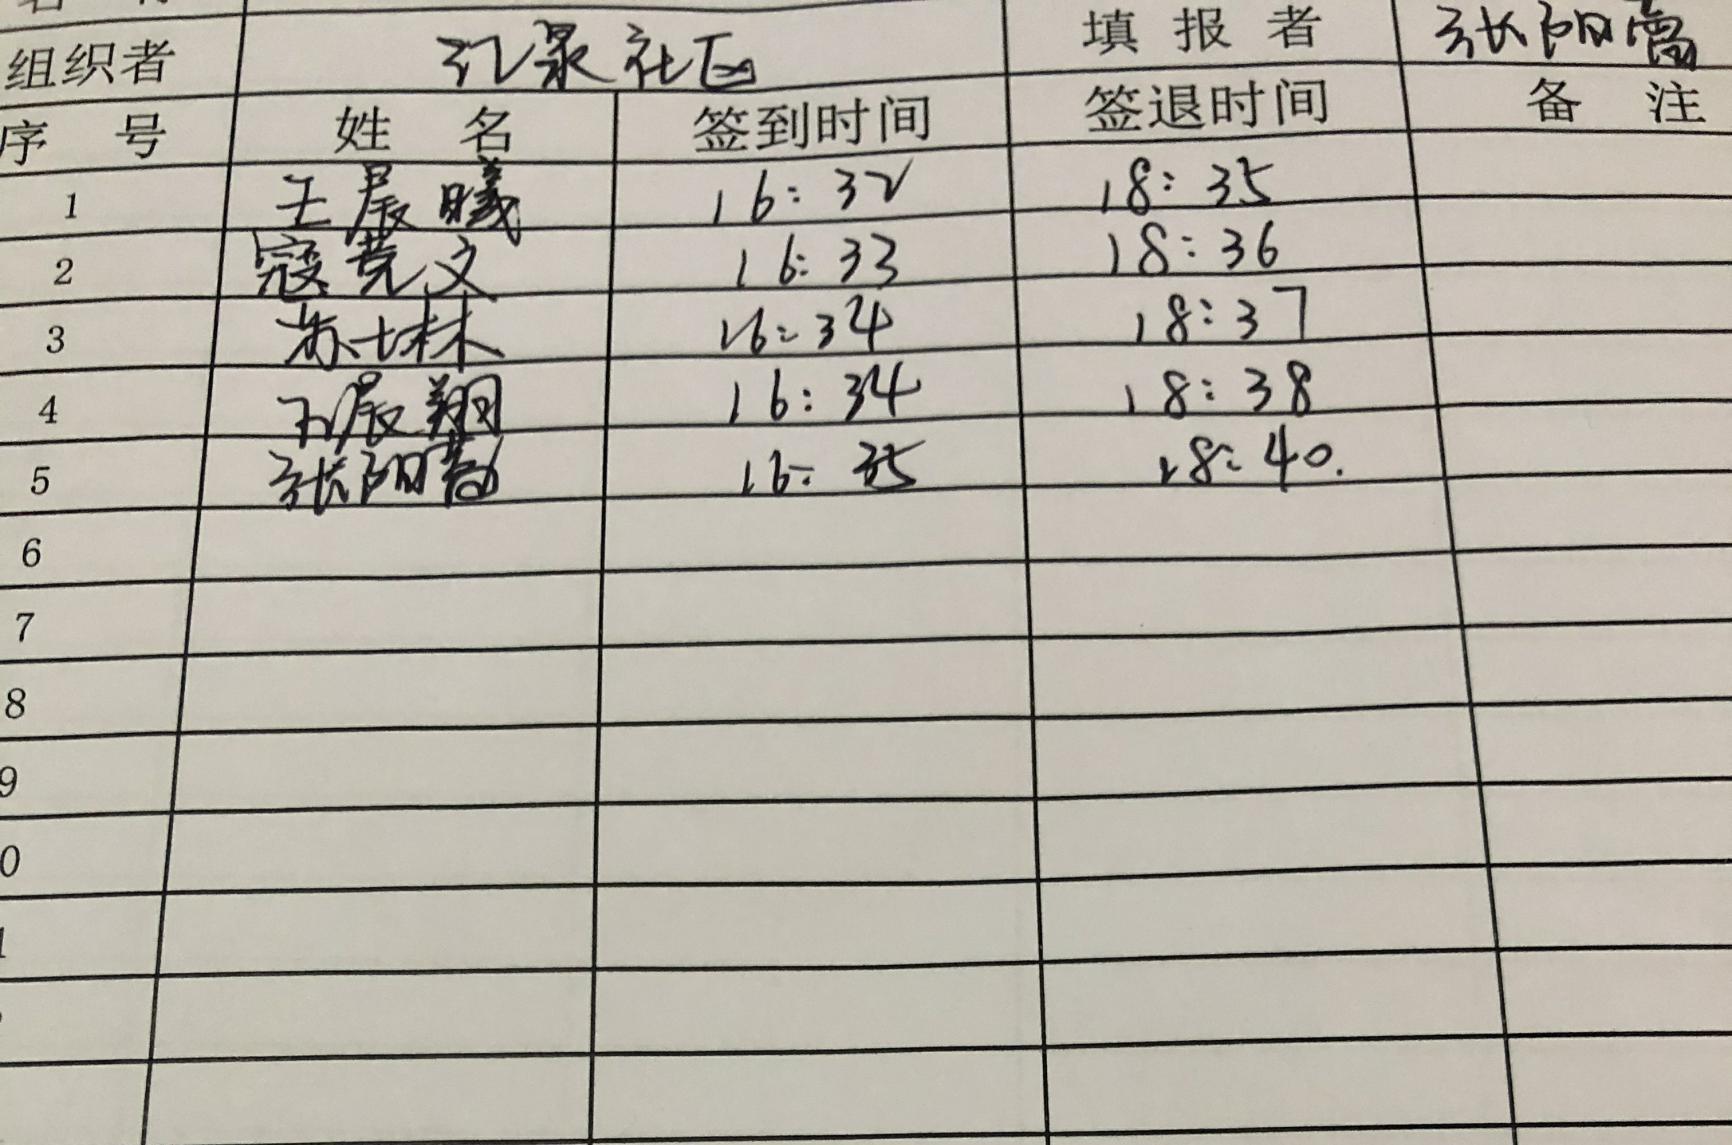 组织者 记录社区 填报者 张阳
序号 姓名 签到时间 签退时间 备注
1 王晨曦 16:32 18:35
2 寇尧文 16:33 18:36
3 苏士林 16:34 18:37
4 王晨翔 16:34 18:38
5 张阳 16:35 18:40.
6
7
8
9
0
1